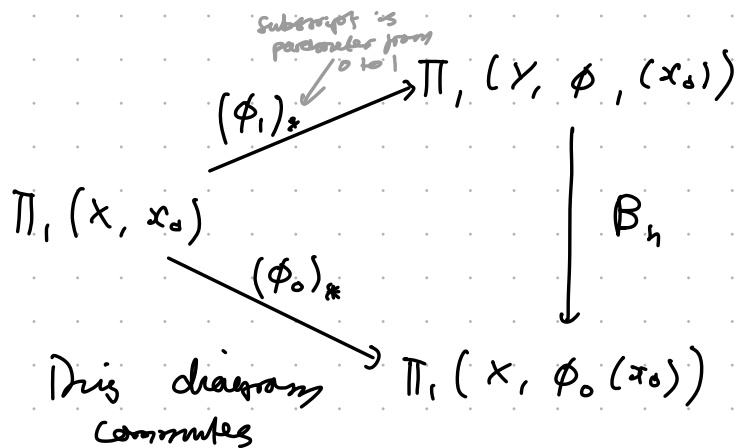 subscript is
parameter from
0 to 1
Π₁ (Y, ϕ₁(x₀))
(ϕ₁)⁎
Π₁ (X, x₀)
βₕ
(ϕ₀)⁎
Π₁ (X, ϕ₀(x₀))
This diagram
commutes